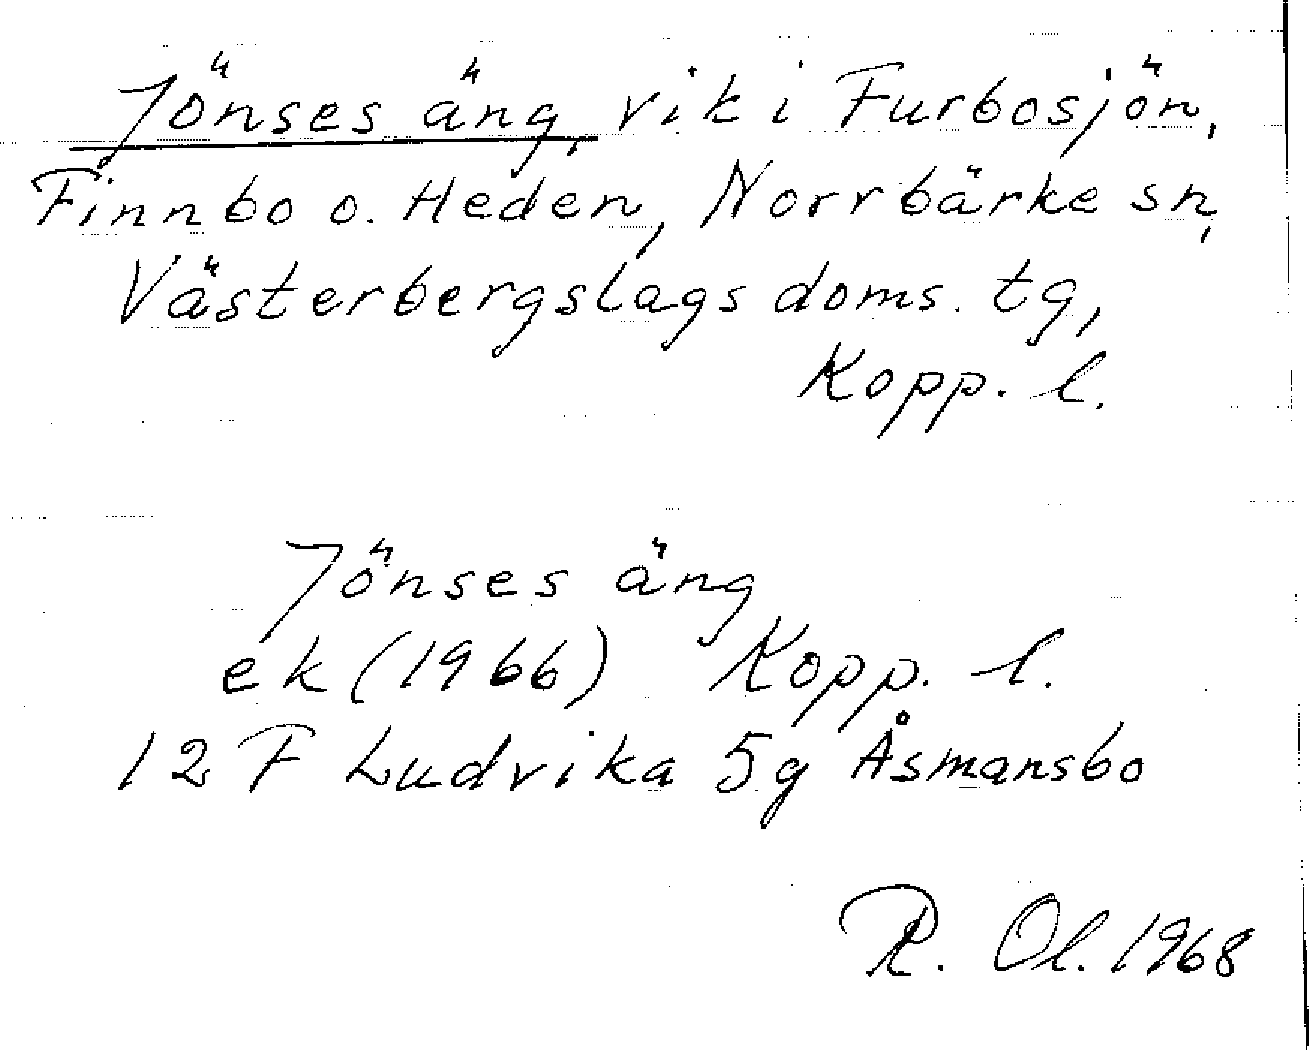 Jönses äng, vik i Furbosjön,
Finnbo o. Heden, Norrbärke sn,
Västerbergslags doms. tg,
Kopp. l.
Jönses äng
ek (1966) Kopp. l.
12 F Ludvika 5g Åsmansbo
R. Ol. 1968